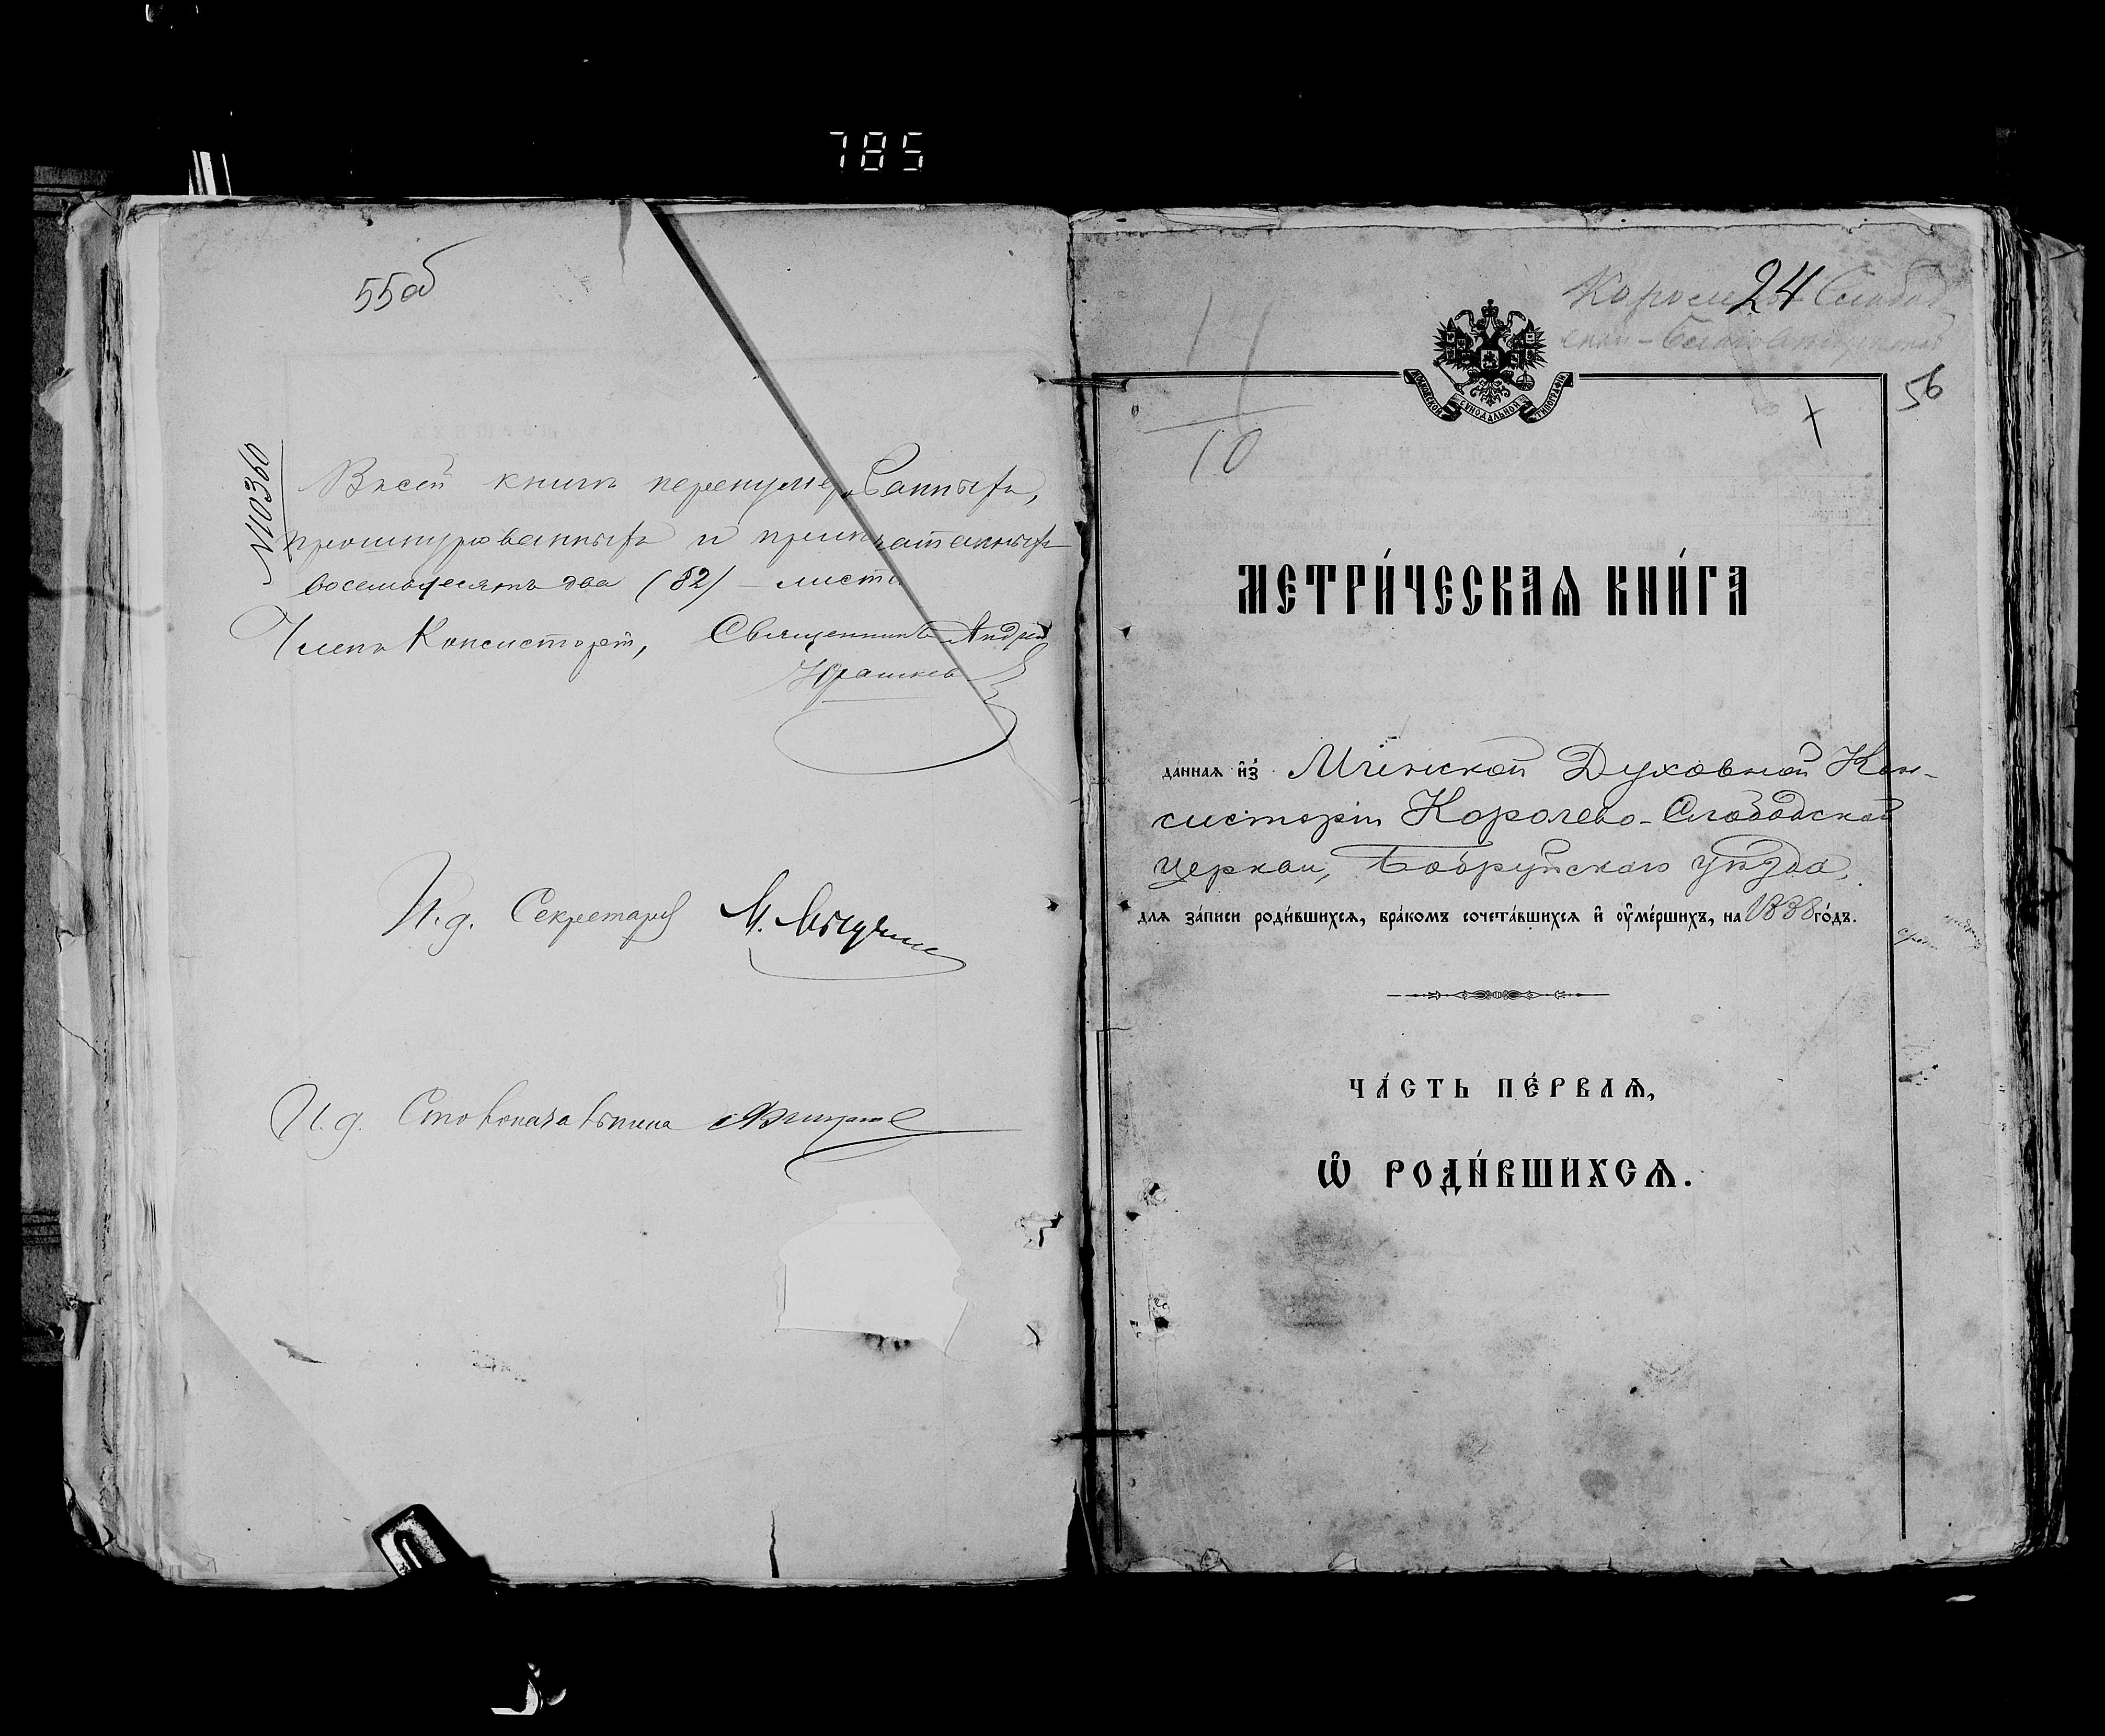 785
55об
N10360
Въ сей книгѣ перенумерованныхъ,
прошнурованныхъ и припечатанныхъ
восемьдесятъ два (82) листа
Членъ Консисторіи, Священникъ Андрей
Юрашкевъ
И. д. Секретаря М.
И. д. Столоначальника
Королево Слобод
24
ской
56
10
МОСКОВСКОЙ СѴНОДАЛЬНОЙ ТИПОГРАФІИ
МЕТРИ́ЧЕСКАѦ КНИ́ГА
даннаѧ и҆з̾ Минской Духовной Кон-
систоріи Королево-Слободской
церкви, Бобруйскаго уѣзда,
длѧ за́писи роди́вшихсѧ, бра́комъ сочета́вшихсѧ и҆ ᲂу҆ме́ршихъ, на 1888 го́дъ.
ЧА́СТЬ ПЕ́РВАѦ,
Ѽ РОДИ́ВШИХСѦ.